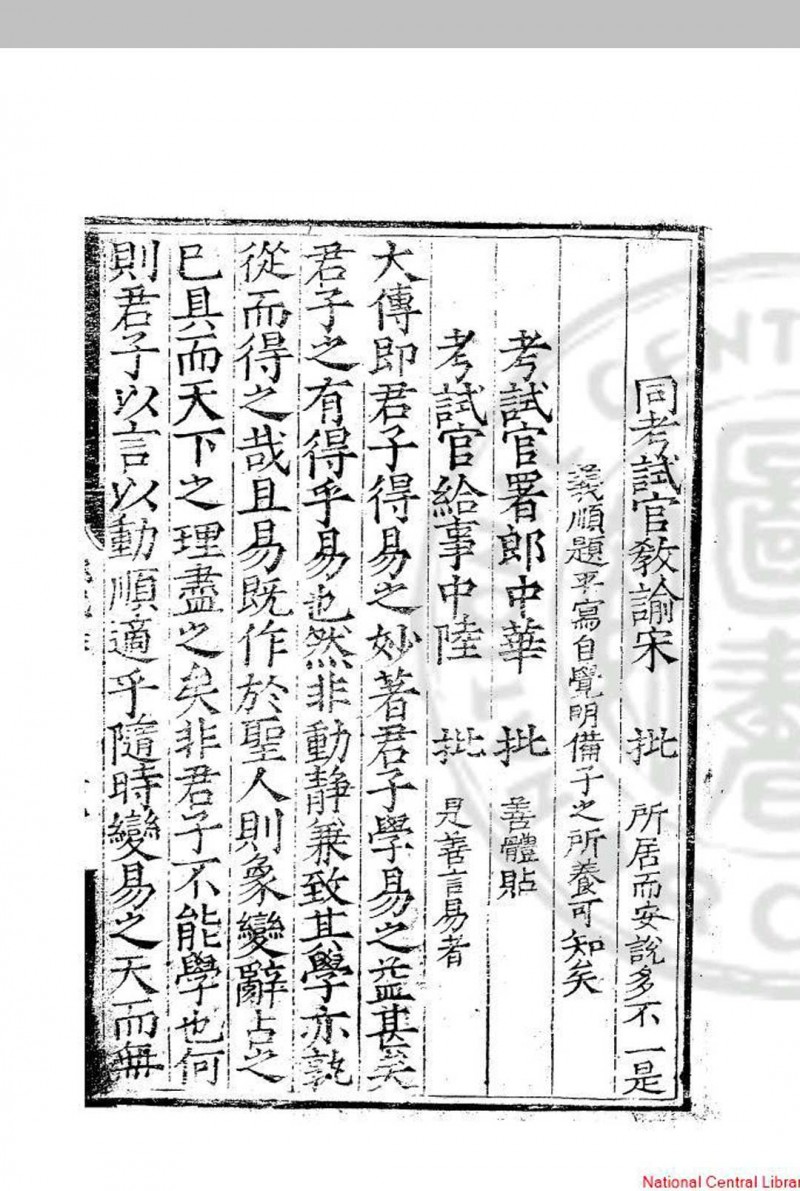 同考試官教諭宋 批 所居而安說多不一是
義順題平寫自覺明備子之所養可知矣
考試官署郎中華 批 善體貼
考試官給事中陸 批 是善言易者
大傳即君子得易之妙著君子學易之益甚矣
君子之有得乎易也然非動靜兼致其學亦孰
從而得之哉且易既作於聖人則象變辭占之
已具而天下之理盡之矣非君子不能學也何
則君子以言以動順適乎隨時變易之天而無
National Central Librar